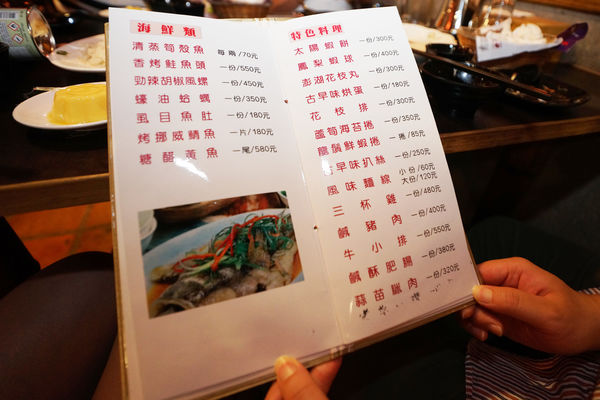 海鮮類
清蒸筍殼魚 每兩/70元
香烤鮭魚頭 一份/550元
勁辣胡椒風螺 一份/450元
蠔油蛤蠣 一份/350元
虱目魚肚 一份/180元
烤挪威鯖魚 一片/180元
糖醋黃魚 一尾/580元
特色料理
太陽蝦餅 一份/300元
鳳梨蝦球 一份/400元
澎湖花枝丸 一份/300元
古早味烘蛋 一份/180元
花枝排 一份/300元
蘆筍海苔捲 一份/350元
龍鬚鮮蝦捲 一捲/85元
古早味扒絲 一份/250元
風味麵線 小份/60元
大份/120元
三杯雞 一份/480元
鹹豬肉 一份/400元
牛小排 一份/550元
鹹酥肥腸 一份/380元
蒜苗臘肉 一份/320元